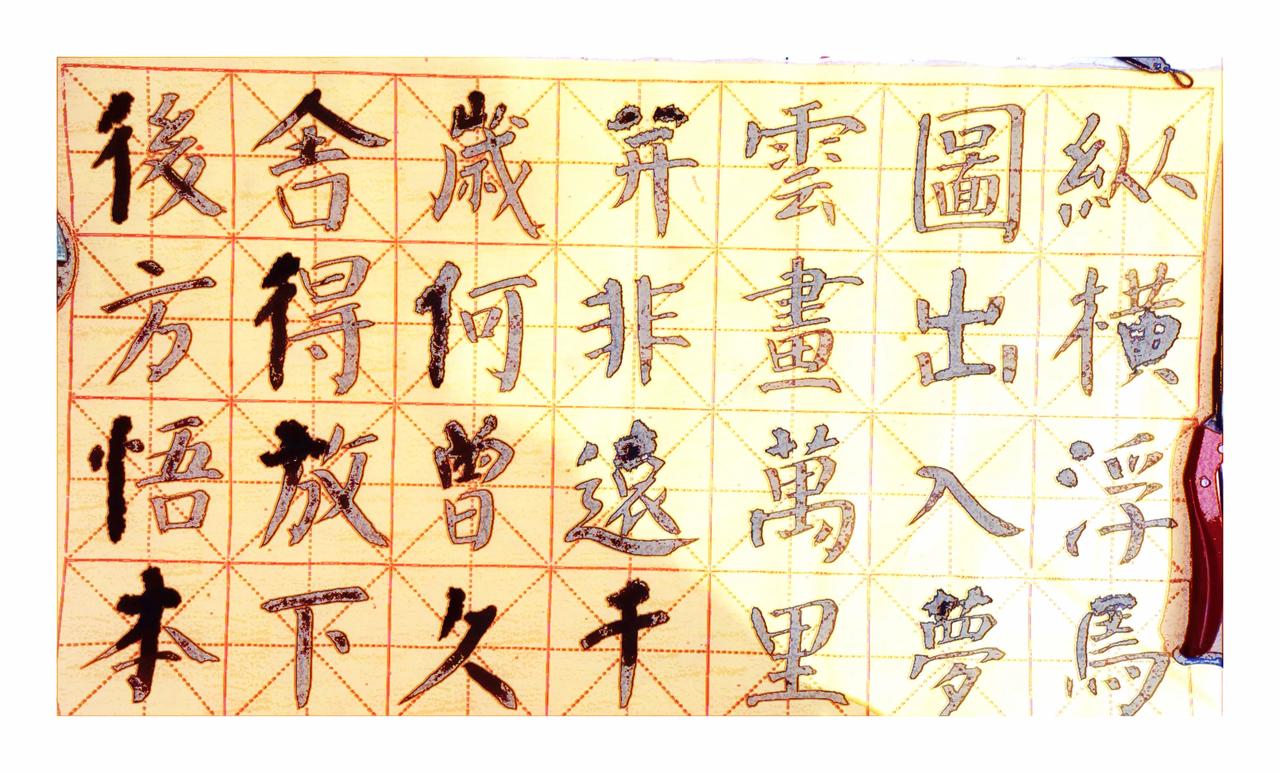 纵橫浮馬
圖出入夢
雲畫萬里
并非遠千
歲何曾久
舍得放下
後方悟本